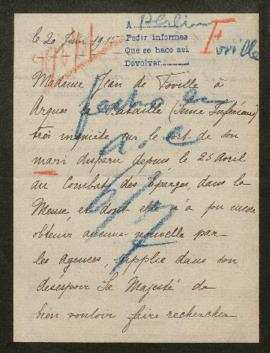 A Berlin
Pedir informes
Que se hace así
Devolver
Foville
le 20 Juin 1915
Madame Jean de Foville à
Arques la Bataille (Seine Inférieure)
très inquiète sur le sort de son
mari disparu depuis le 25 avril
au combat des Eparges, dans la
Meuse, et dont elle n'a pu encore
obtenir aucune nouvelle par
les agences, supplie dans son
désespoir Sa Majesté de
bien vouloir faire rechercher